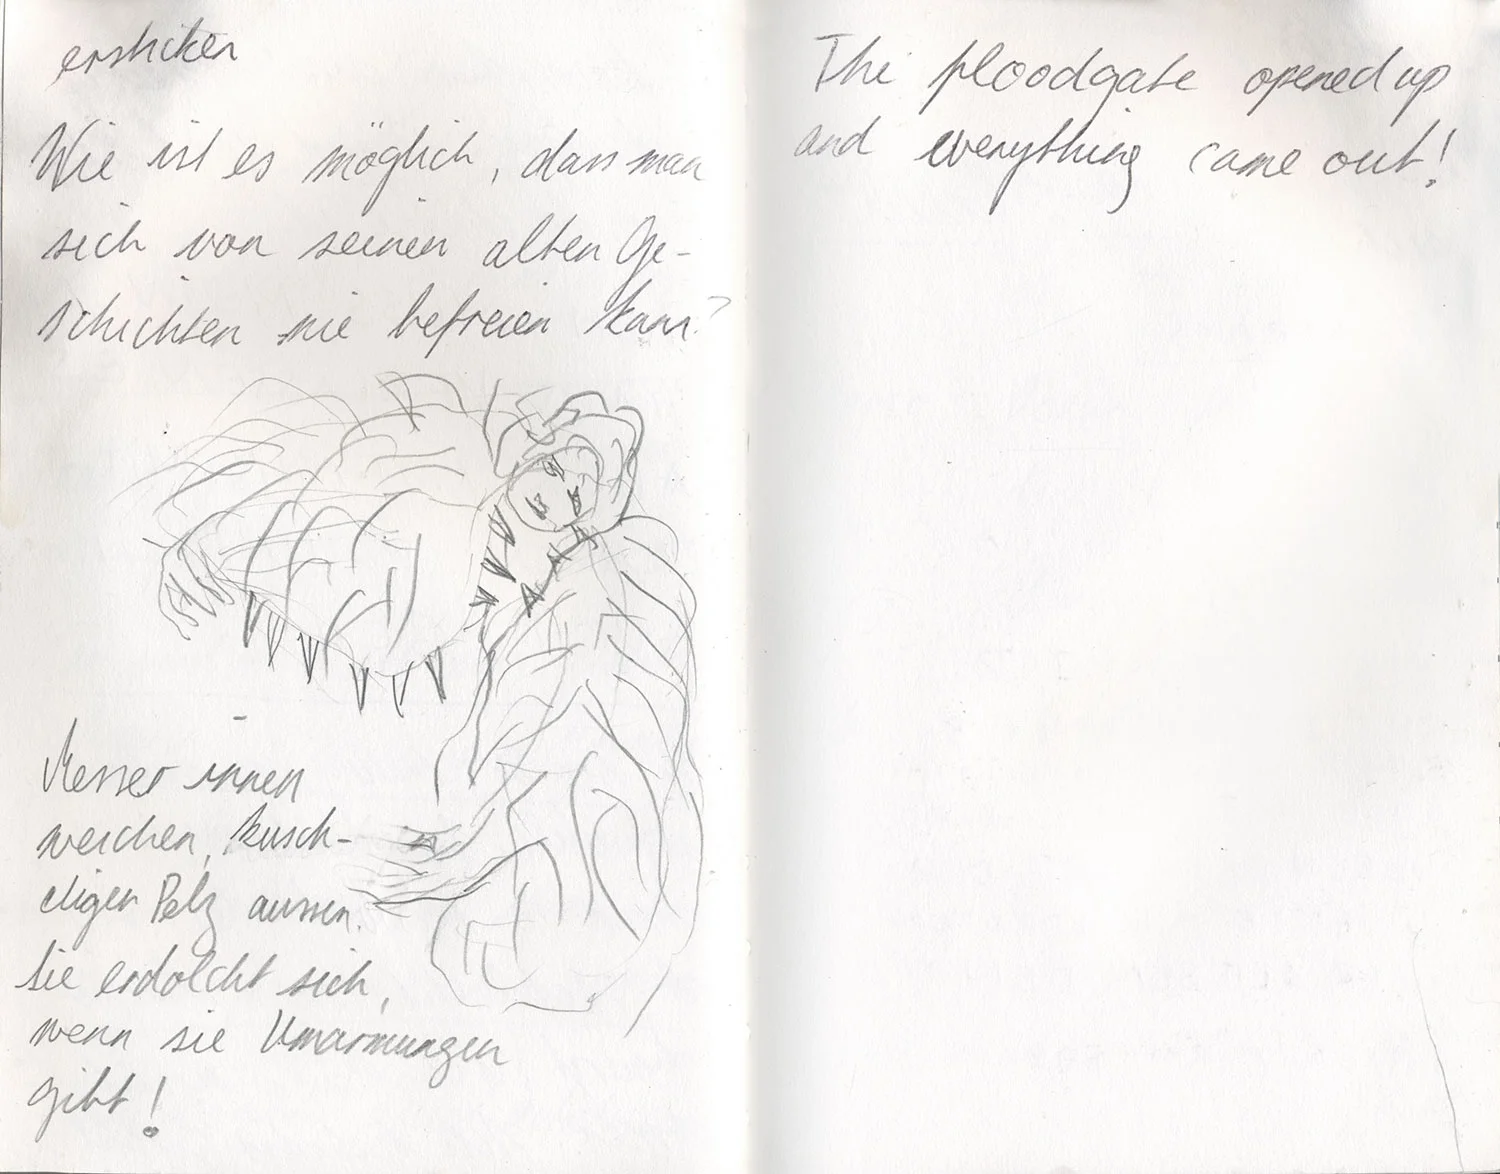 ersticken
Wie ist es möglich, dass man
sich von seinen alten Ge-
schichten nie befreien kann?
Messer innen
weichen, kusch-
eligen Pelz aussen.
Sie erdolcht sich,
wenn sie Umarmungen
gibt!
The floodgate opened up
and everything came out!